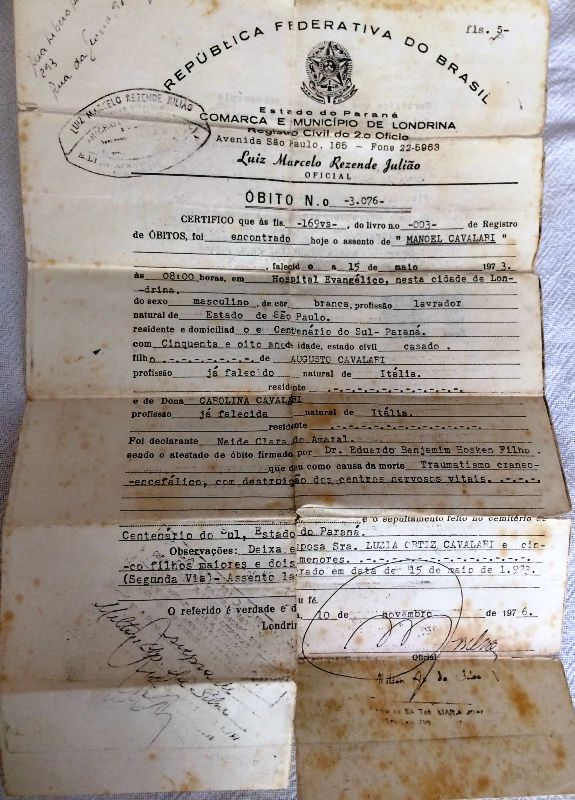 fls. 5-
REPÚBLICA FEDERATIVA DO BRASIL
293
LUIZ MARCELO REZENDE JULIÃO
Estado do Paraná
COMARCA E MUNICÍPIO DE LONDRINA
Registro Civil do 2.o Ofício
Avenida São Paulo, 165 - Fone 22-5963
Luiz Marcelo Rezende Julião
OFICIAL
ÓBITO N.o -3.076-
CERTIFICO que às fls. -169vs-, do livro no -003- de Registro
de ÓBITOS, foi encontrado hoje o assento de " MANOEL CAVALARI "
, falecido a 15 de maio 1973.
às 08:00 horas, em Hospital Evangélico, nesta cidade de Lon-
-drina.
do sexo masculino, de côr branca, profissão lavrador
natural de Estado de São Paulo.
residente e domiciliado e Centenário do Sul- Paraná.
com Cinquenta e oito anos idade, estado civil casado.
filho .-.-.-.-.-. de AUGUSTO CAVALARI
profissão já falecido natural de Itália.
residente .-.-.-.-.-.-.
e de Dona CAROLINA CAVALARI
profissão já falecida natural de Itália.
residente .-.-.-.-.-.-.
Foi declarante Neide Clara do Amaral.
sendo o atestado de óbito firmado por Dr. Eduardo Benjamim Hosken Filho.
que deu como causa da morte Traumatismo craneo-
-encefálico, com destruição dos centros nervosos vitais. .-.-.-.
e o sepultamento feito no cemitério de
Centenário do Sul, Estado do Paraná.
Observações: Deixa esposa Sra. LUZIA ORTIZ CAVALARI e cin-
-co filhos maiores e dois menores. .-.-.-.-.-.-.
(Segunda Via)- Assento lavrado em data de 15 de maio de 1.973.
O referido é verdade e dou fé.
Londrina, 10 de novembro de 1976.
Oficial